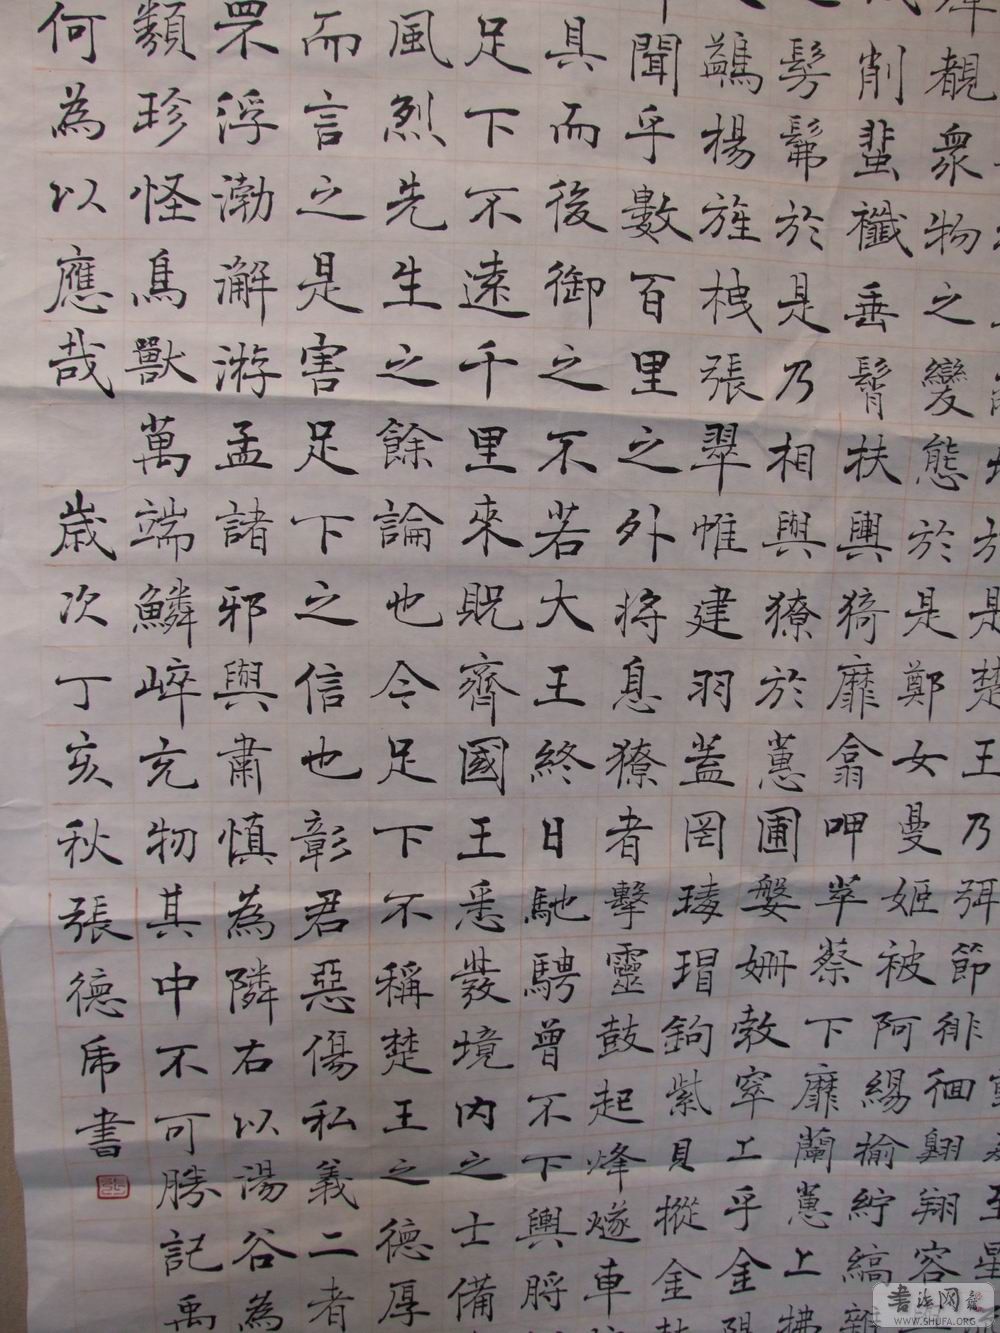 是楚王乃弭節徘徊翱翔容
覩衆物之變態於是鄭女曼姬被阿緆揄紵縞雜
削蜚襳垂髾扶輿猗靡翕呷萃蔡下靡蘭蕙上拂
髣髴於是乃相與獠於蕙圃媻姍勃窣上乎金隄
鷁楊旌栧張翠帷建羽蓋罔瑇瑁鉤紫貝摐金鼓
聞乎數百里之外將息獠者擊靈鼓起烽燧車
具而後御之不若大王終日馳騁曾不下輿脟
足下不遠千里來貺齊國王悉發境內之士備
風烈先生之餘論也今足下不稱楚王之德厚
而言之是害足下之信也彰君惡傷私義二者
罘浮渤澥游孟諸邪與肅慎為隣右以湯谷為
類珍怪鳥獸萬端鱗崪充物其中不可勝記禹
何為以應哉 歲次丁亥秋張德書
書法网
WWW.SHUFA.ORG